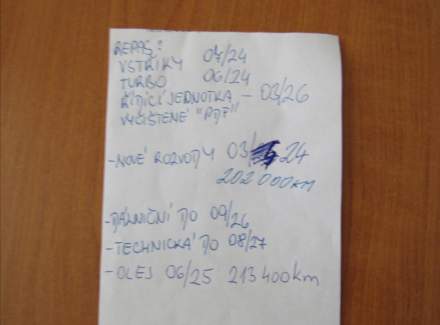 REPAS:
VSTŘIKY 07/24
TURBO 06/24
ŘÍDÍCÍ JEDNOTKA - 03/26
VYČIŠTENÉ "PDF"
-NOVÉ ROZVODY 03/ 24
202 000KM
-DÁLNIČNÍ DO 09/26
-TECHNICKÁ DO 08/27
-OLEJ 06/25 213400km